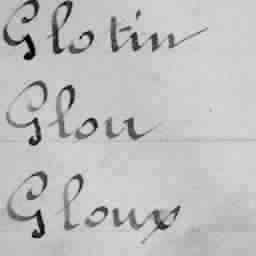 Glotin
Glou
Gloux